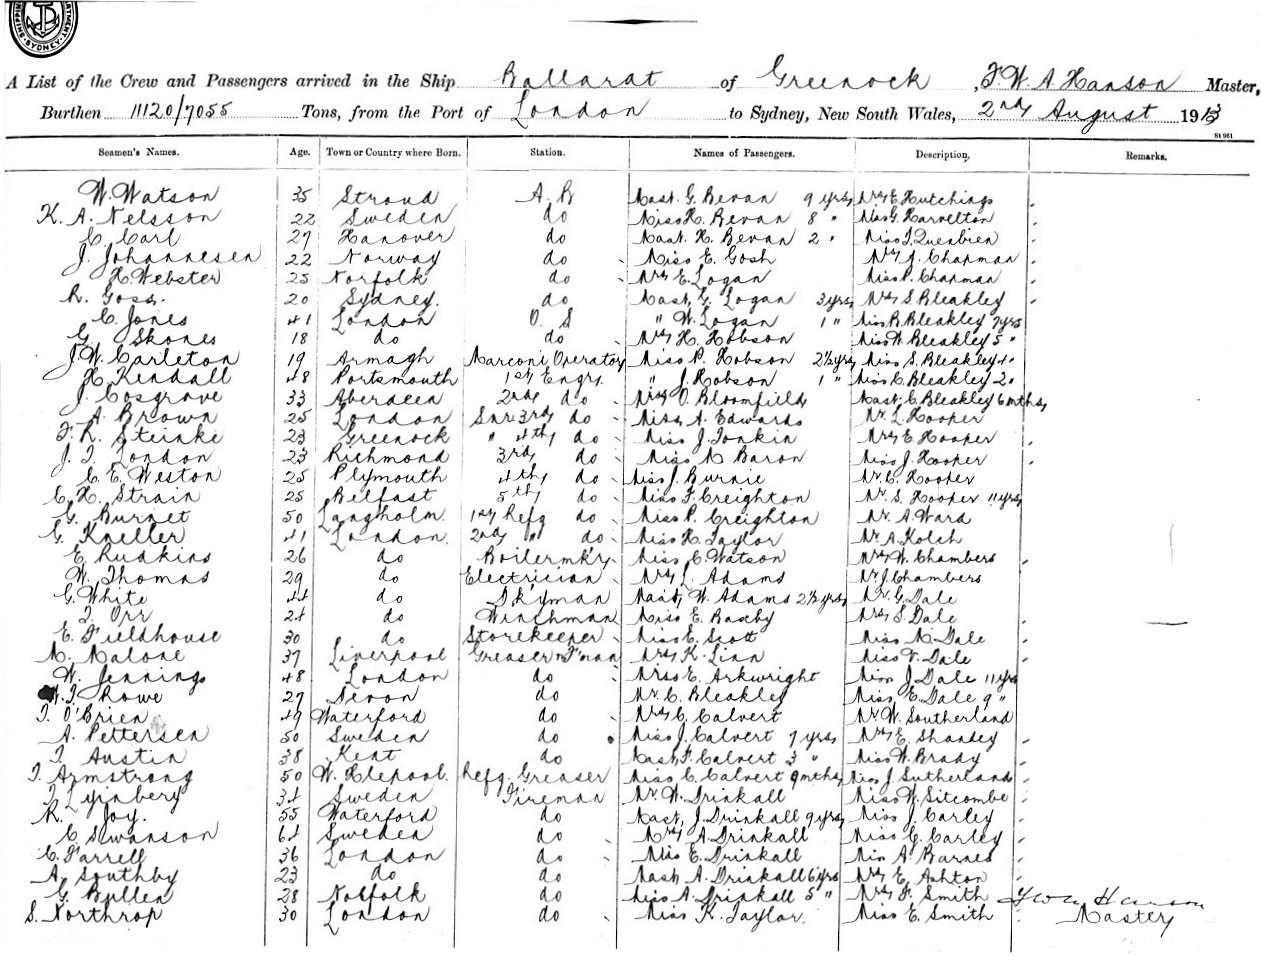 SHIPPING DEPARTMENT. SYDNEY
A List of the Crew and Passengers arrived in the Ship Ballarat of Greenock, F. W. A. Hanson Master,
Burthen 11120/7055 Tons, from the Port of London to Sydney, New South Wales, 2nd August 1913
St 961
Seamen's Names. Age. Town or Country where Born. Station. Names of Passengers. Description. Remarks.
W. Watson 35 Stroud A. B Mast. G. Bevan 9 yrs Mrs E. Hutchings
K. A. Nelsson 22 Sweden do Miss K. Bevan 8 " Miss G. Harvelton
C. Carl 27 Hanover do Mast. H. Bevan 2 " Miss J. Quenbien
J. Johannesen 22 Norway do Miss E. Gosh Mrs J. Chapman
H. Webster 25 Norfolk do Mrs E. Logan Miss P. Chapman
R. Goss. 20 Sydney. do Mast G. Logan 3 yrs Mrs S. Bleakley
C. Jones 41 London O. S " W. Logan 1 " Miss R. Bleakley 7 yrs
G. Skones 18 do do Mrs H. Hobson Miss W. Bleakley 5 "
J. W. Carleton 19 Armagh Marconi Operator Miss P. Hobson 2½ yrs Miss S. Bleakley 4 "
H. Kendall 48 Portsmouth 1st Engr. " J. Hobson 1 " Miss C. Bleakley 2 "
J. Cosgrove 33 Aberdeen 2nd do Mrs O. Bloomfield Mast C. Bleakley 6 mths
A. Brown 25 London Snr 3rd do Miss A. Edwards Mr. L. Hooper
F. R. Steinke 23 Greenock " 4th do Miss J. Tonkin Mrs E. Hooper
J. T. London 23 Richmond 3rd do Miss M Baron Miss J. Hooper
C. E. Weston 25 Plymouth 4th do Miss J. Burnie Mr. C. Hooper
C. H. Strain 25 Belfast 5th do Miss F. Creighton Mr. S. Hooper 11 yrs
G. Burnet 50 Langholm. 1st Refg do Miss P. Creighton Mr. A. Ward
G. Kneller 41 London. 2nd " do Miss H. Taylor Mr A. Kolch
E. Rudkins 26 do Boilermkr Miss C. Watson Mrs W. Chambers
W. Thomas 29 do Electrician Mrs L. Adams Mr J. Chambers
G. White 44 do Dkyman Mast W. Adams 2½ yrs Mr. G. Dale
T. Orr 24 do Winchman Miss E. Baxby Mrs S. Dale
E. Fieldhouse 30 do Storekeeper Miss E. Scott Miss M. Dale
M. Malone 37 Liverpool Greaser & F'man Mrs K. Linn Miss V. Dale
W. Jennings 48 London do Miss E. Arkwright Miss J. Dale 11 yrs
W. J. Rowe 27 Devon do Mr. C. Bleakley Miss E. Dale 9 "
T. O'Brien 49 Waterford do Mrs C. Calvert Mr. W. Southerland
A. Pettersen 50 Sweden do Miss J. Calvert 7 yrs Mrs E. Shansey
T. Austin 38 Kent do Mast F. Calvert 3 " Miss W. Brady
T. Armstrong 50 W. Hlepool. Refg. Greaser Miss C. Calvert 9 mths Miss J. Sutherland
34 Sweden Fireman Mr. W. Drinkall Miss W. Sitcombe
R. Joy. 55 Waterford do Mast J. Drinkall 9 yrs Miss J. Carley
C. Swanson 64 Sweden do Mrs A. Drinkall Miss G. Carley
C. Farrell 36 London do Miss E. Drinkall Miss A. Barnes
A. Southby 23 do do Mast A. Drinkall 6 yrs Mrs E. Ashton
G. Bullen 28 Norfolk do Miss A. Drinkall 5 " Mrs F. Smith
S. Northrop 30 London do Miss K. Taylor. Miss E. Smith
F W A Hanson
Master